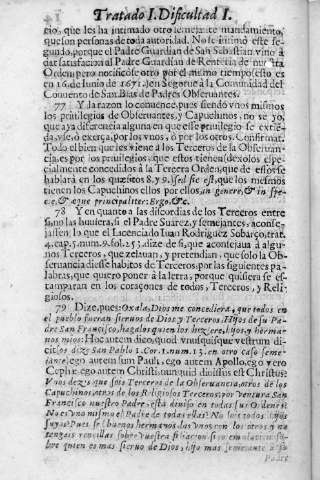 Tratado I. Dificultad I.
cio, que les ha intimado otro semejante mandamiento,
que son personas de toda autoridad. No es intimo este segundo, porque el Padre Guardian de San Sebastian vino à
dar satisfacion al Padre Guardian de Renteria de nuestra
Orden; pero notificòse otro por el mismo tiempo; esto es
en 16. de Iunio de 1671. en Segorue à la Comunidad del
Conuento de San Blàs de Padres Obseruantes.
77 Y la razon lo conuence, pues siendo vnos mismos
los priuilegios de Obseruantes, y Capuchinos, no se yo,
que aya diferencia alguna en que esse priuilegio se extienda, vse, ò exerça, por los vnos, ò por los otros. Confirmat.
Todo el bien que les viene à los Terceros de la Obseruancia, es por los priuilegios, que estos tienen dexolos especialmente concedidos à la Tercera Orden, que de ellos se
hablarà en los quæsitos 8. y 9. Sed sic est, que los mesmos
tienen los Capuchinos ellos por ellos, in genere, & in specie, & æque principaliter: Ergo, &c.
78 Y en quanto a las discordias de los Terceros entre
si, no las huuiera, si el Padre Suarez, y semejantes, aconsejassen lo que el Licenciado Iuan Rodriguez Sobarço, trat.
4. cap. 5. num. 9. fol. 253. dize de si, que aconsejaua à algunos Terceros, que zelauan, y pretendian, que solo la Obseruancia diesse habitos de Terceros por las siguientes palabras, que quiero poner à la letra, porque quisiera se estamparan en los coraçones de todos, Terceros, y Religiosos.
79 Dize, pues: Oxala, Dios me concediera, que todos en
el pueblo fueran sieruos de Dios, y Terceros. Hijos de su Padre San Francisco, hagalos quien los hiziere, hijos, y hermanos mios: Hoc autem dico, quod vnusquisque vestrum dicit (los dize San Pablo 1. Cor. 1. num. 13. en otro caso semejante) ego autem sum Pauli, ego autem Apollo, ego vero
Cephæ ego autem Christi, nunquid diuissus est Christus?
Vnos dezis que sois Terceros de la Obseruancia, otros de los
Capuchinos, otros de los Religiosos Terceros, por ventura San
Francisco nuestro Padre, està deuiso en todas sus Ordenes?
No es vno mismo el Padre de todas ellas? No sois todos hijos
suyos? Pues sed buenos hermanos los vnos con los otros, y no
tengais rencillas sobre vuestra filiacion si no emulacion sobre quien es mas sieruo de Dios, hijo mas semejante à su
Padre